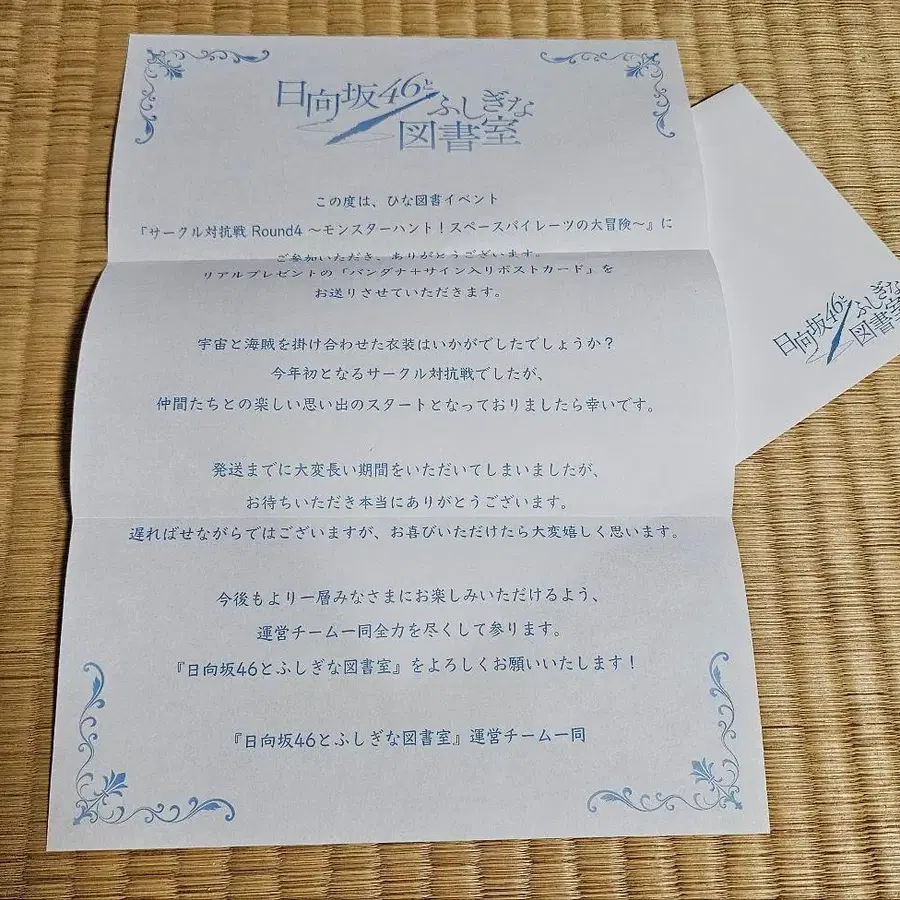 日向坂46と
ふしぎな
図書室
この度は、ひな図書イベント
『サークル対抗戦 Round4 〜モンスターハント！スペースパイレーツの大冒険〜』に
ご参加いただき、ありがとうございます。
リアルプレゼントの「バンダナ＋サイン入りポストカード」を
お送りさせていただきます。
宇宙と海賊を掛け合わせた衣装はいかがでしたでしょうか？
今年初となるサークル対抗戦でしたが、
仲間たちとの楽しい思い出のスタートとなっておりましたら幸いです。
発送までに大変長い期間をいただいてしまいましたが、
お待ちいただき本当にありがとうございます。
遅ればせながらではございますが、お喜びいただけたら大変嬉しく思います。
今後もより一層みなさまにお楽しみいただけるよう、
運営チーム一同全力を尽くして参ります。
『日向坂46とふしぎな図書室』をよろしくお願いいたします！
『日向坂46とふしぎな図書室』運営チーム一同
日向坂46と
ふしぎな
図書室